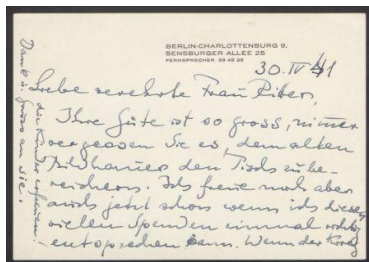 BERLIN-CHARLOTTENBURG 9,
SENSBURGER ALLEE 25
FERNSPRECHER 99 49 25
30. IV 41
Liebe verehrte Frau Biber,
Ihre Güte ist so gross, immer
vergessen Sie es, dem alten
Bildhauer den Tisch zu be-
reichern. Ich freue mich aber
auch jetzt schon wenn ich diese
vielen Spenden einmal richtig
entsprechen kann. Wenn der Krieg
die Kinder erfreuen!
Dank u. gruss an Sie.